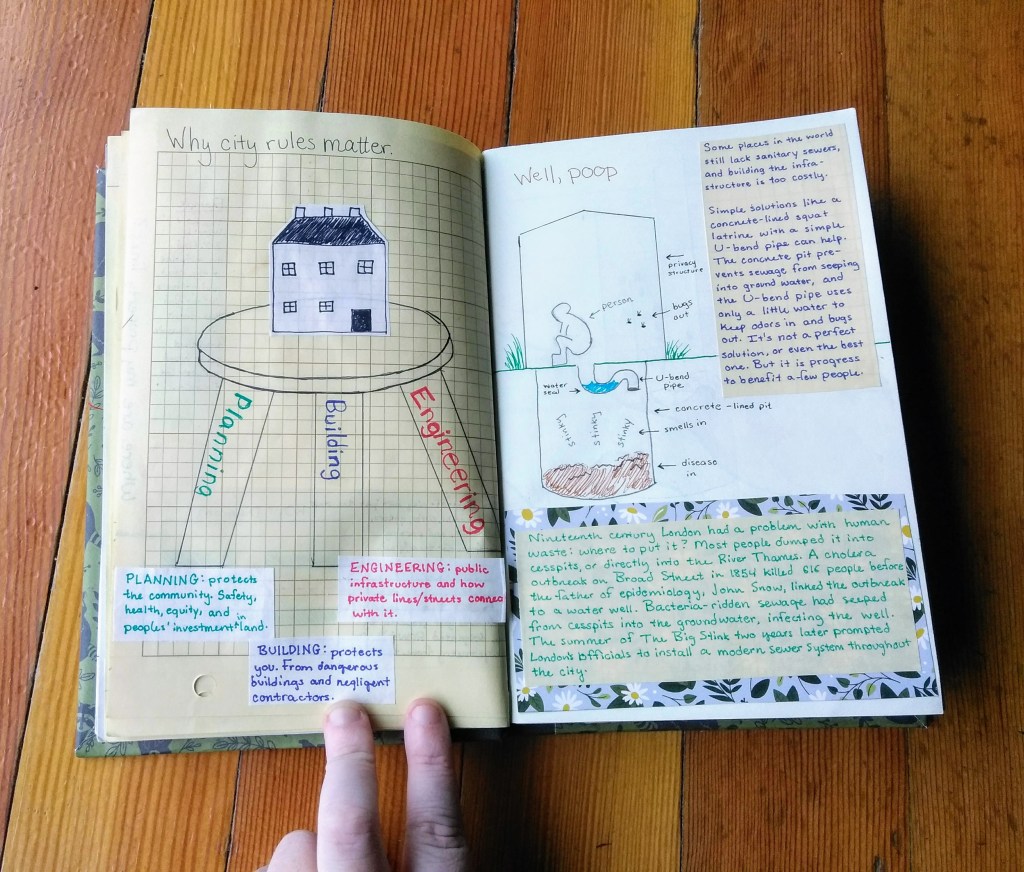 Why city rules matter.
Planning
Building
Engineering
PLANNING: protects
the community. Safety,
health, equity, and in
peoples' investment land.
ENGINEERING: public
infrastructure and how
private lines/streets connect
with it.
BUILDING: protects
you. From dangerous
buildings and negligent
contractors.
Well, poop
Some places in the world
still lack sanitary sewers,
and building the infra-
structure is too costly.
Simple solutions like a
concrete-lined squat
latrine with a simple
U-bend pipe can help.
The concrete pit pre-
vents sewage from seeping
into ground water, and
the U-bend pipe uses
only a little water to
keep odors in and bugs
out. It's not a perfect
solution, or even the best
one. But it is progress
to benefit a few people.
privacy
structure
person
bugs
out
water
seal
U-bend
pipe
concrete-lined pit
stinky
stinky
stinky
smells in
disease
in
Nineteenth century London had a problem with human
waste: where to put it? Most people dumped it into
cesspits, or directly into the River Thames. A cholera
outbreak on Broad Street in 1854 killed 616 people before
the father of epidemiology, John Snow, linked the outbreak
to a water well. Bacteria-ridden sewage had seeped
from cesspits into the groundwater, infecting the well.
The summer of The Big Stink two years later prompted
London's officials to install a modern Sewer System throughout
the city.